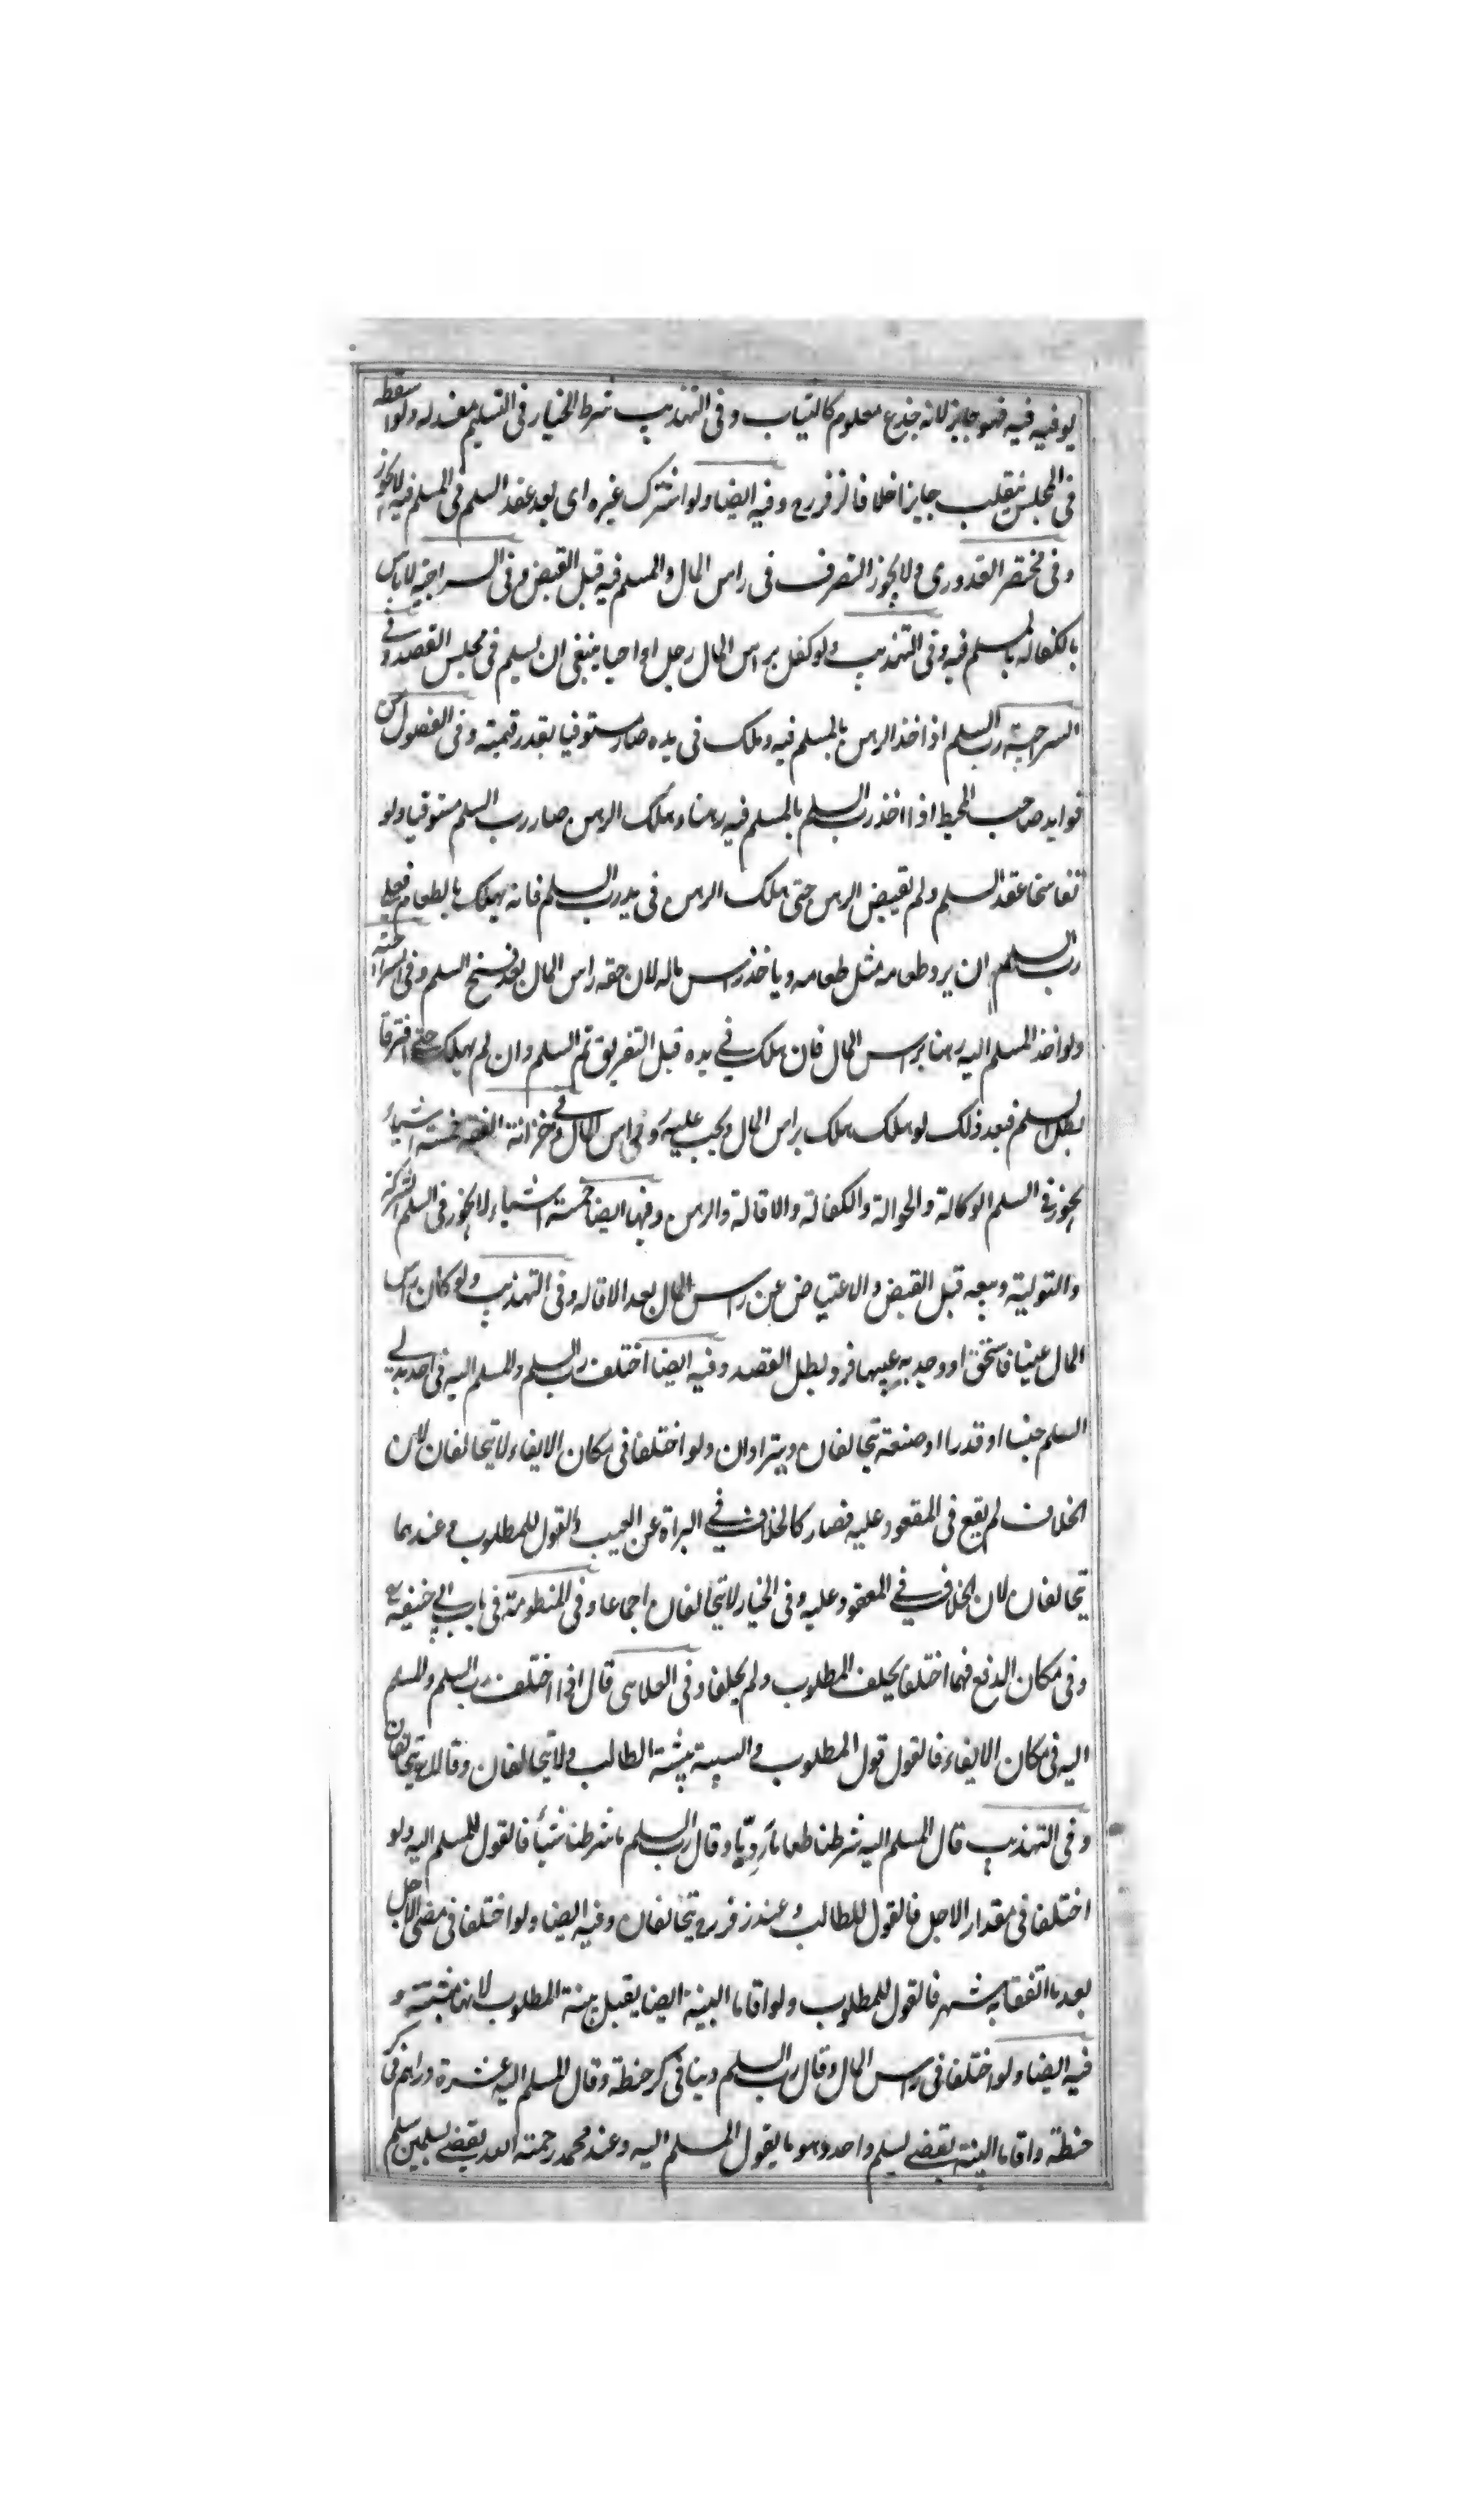 يوفيه فيه فهو جايز لانه جذع معلوم كالثياب وفى التهذيب شرط الخيار فى التسليم مفسد له ولو اسقطه
فى المجلس ينقلب جايزا خلافا لزفر رح وفيه ايضا ولو اشترك غيره اى بعد عقد السلم فى المسلم فيه لا يجوز
وفى مختصر القدورى ولا يجوز التصرف فى راس المال والمسلم فيه قبل القبض وفى السراجية لا باس
بالكفالة بالمسلم فيه وفى التهذيب ولو كفل براس المال رجل او احيا ينبغى ان يسلم فى مجلس العقد وفے
السراجية رب السلم اذا اخذ الرهن بالمسلم فيه وهلك فى يده صار مستوفيا بقدر قيمته وفى الفصول من
فوايد صاحب المحيط اذا اخذ رب السلم بالمسلم فيه رهنا وهلك الرهن صار رب السلم مستوفيا ولو
تفاسخا عقد السلم ولم يقبض الرهن حتى هلك الرهن فى يد رب السلم فانه يهلك بالطعام فعلى
رب السلم ان يرد طعامه مثل طعامه وياخذ راس ماله لان حقه راس المال بعد فسخ السلم وفى السراجية
ولو اخذ المسلم اليه رهنا براس المال فان هلك فے يده قبل التفريق تم السلم وان لم يهلك حتى افترقا
بطل السلم فبعد ذلك لو هلك هلك براس المال ويجب عليه رد راس المال وفے خزانة الفقه خمسة اشياء
يجوز فے السلم الوكالة والحوالة والكفالة والاقالة والرهن وفيها ايضا خمسة اشياء لا يجوز فى السلم الشركة
والتولية وبيعه قبل القبض والاعتياض عن راس المال بعد الاقاله وفى التهذيب ولو كان راس
المال عينا فاستحق او وجد به عيبها فرد بطل العقد وفيه ايضا اختلف رب السلم والمسلم اليه فى احد بدلے
السلم جنسا او قدرا او صنعة يتحالفان ويترادان ولو اختلفا فى مكان الايفاء لا يتحالفان لان
الخلاف لم يقع فى المعقود عليه فصار كالخلاف فے البراة عن العيب والقول للمطلوب وعندهما
يتحالفان لان الخلاف فے المعقود عليه وفى الخيار لا يتحالفان اجماعا وفى المنظومة فى باب ابى حنيفة رح
وفى مكان الدفع فيهما اختلفا يحلف المطلوب ولم يحلفا وفى العلاسى قال اذا اختلف رب السلم والمسلم
اليه فى مكان الايفاء فالقول قول المطلوب والبينة بينة الطالب ولا يتحالفان وقالا يتحالفان
وفى التهذيب قال المسلم اليه شرطنا طعاما رديّا وقال رب السلم ما شرطنا شيئا فالقول للمسلم اليه ولو
اختلفا فى مقدار الاجل فالقول للطالب وعند زفر رح يتحالفان وفيه ايضا ولو اختلفا فى مضى الاجل
بعد ما اتفقا به شهر فالقول للمطلوب ولو اقاما البينة ايضا يقبل بينة المطلوب لانها مثبتة و
فيه ايضا ولو اختلفا فى راس المال وقال رب السلم دينا فى كر حنطة وقال المسلم اليه عشرة دراهم فى كر
حنطة واقاما البينة يقضے بسلم واحد وهو ما يقول المسلم اليه وعند محمد رحمته الله يقضے بسلمين سلم